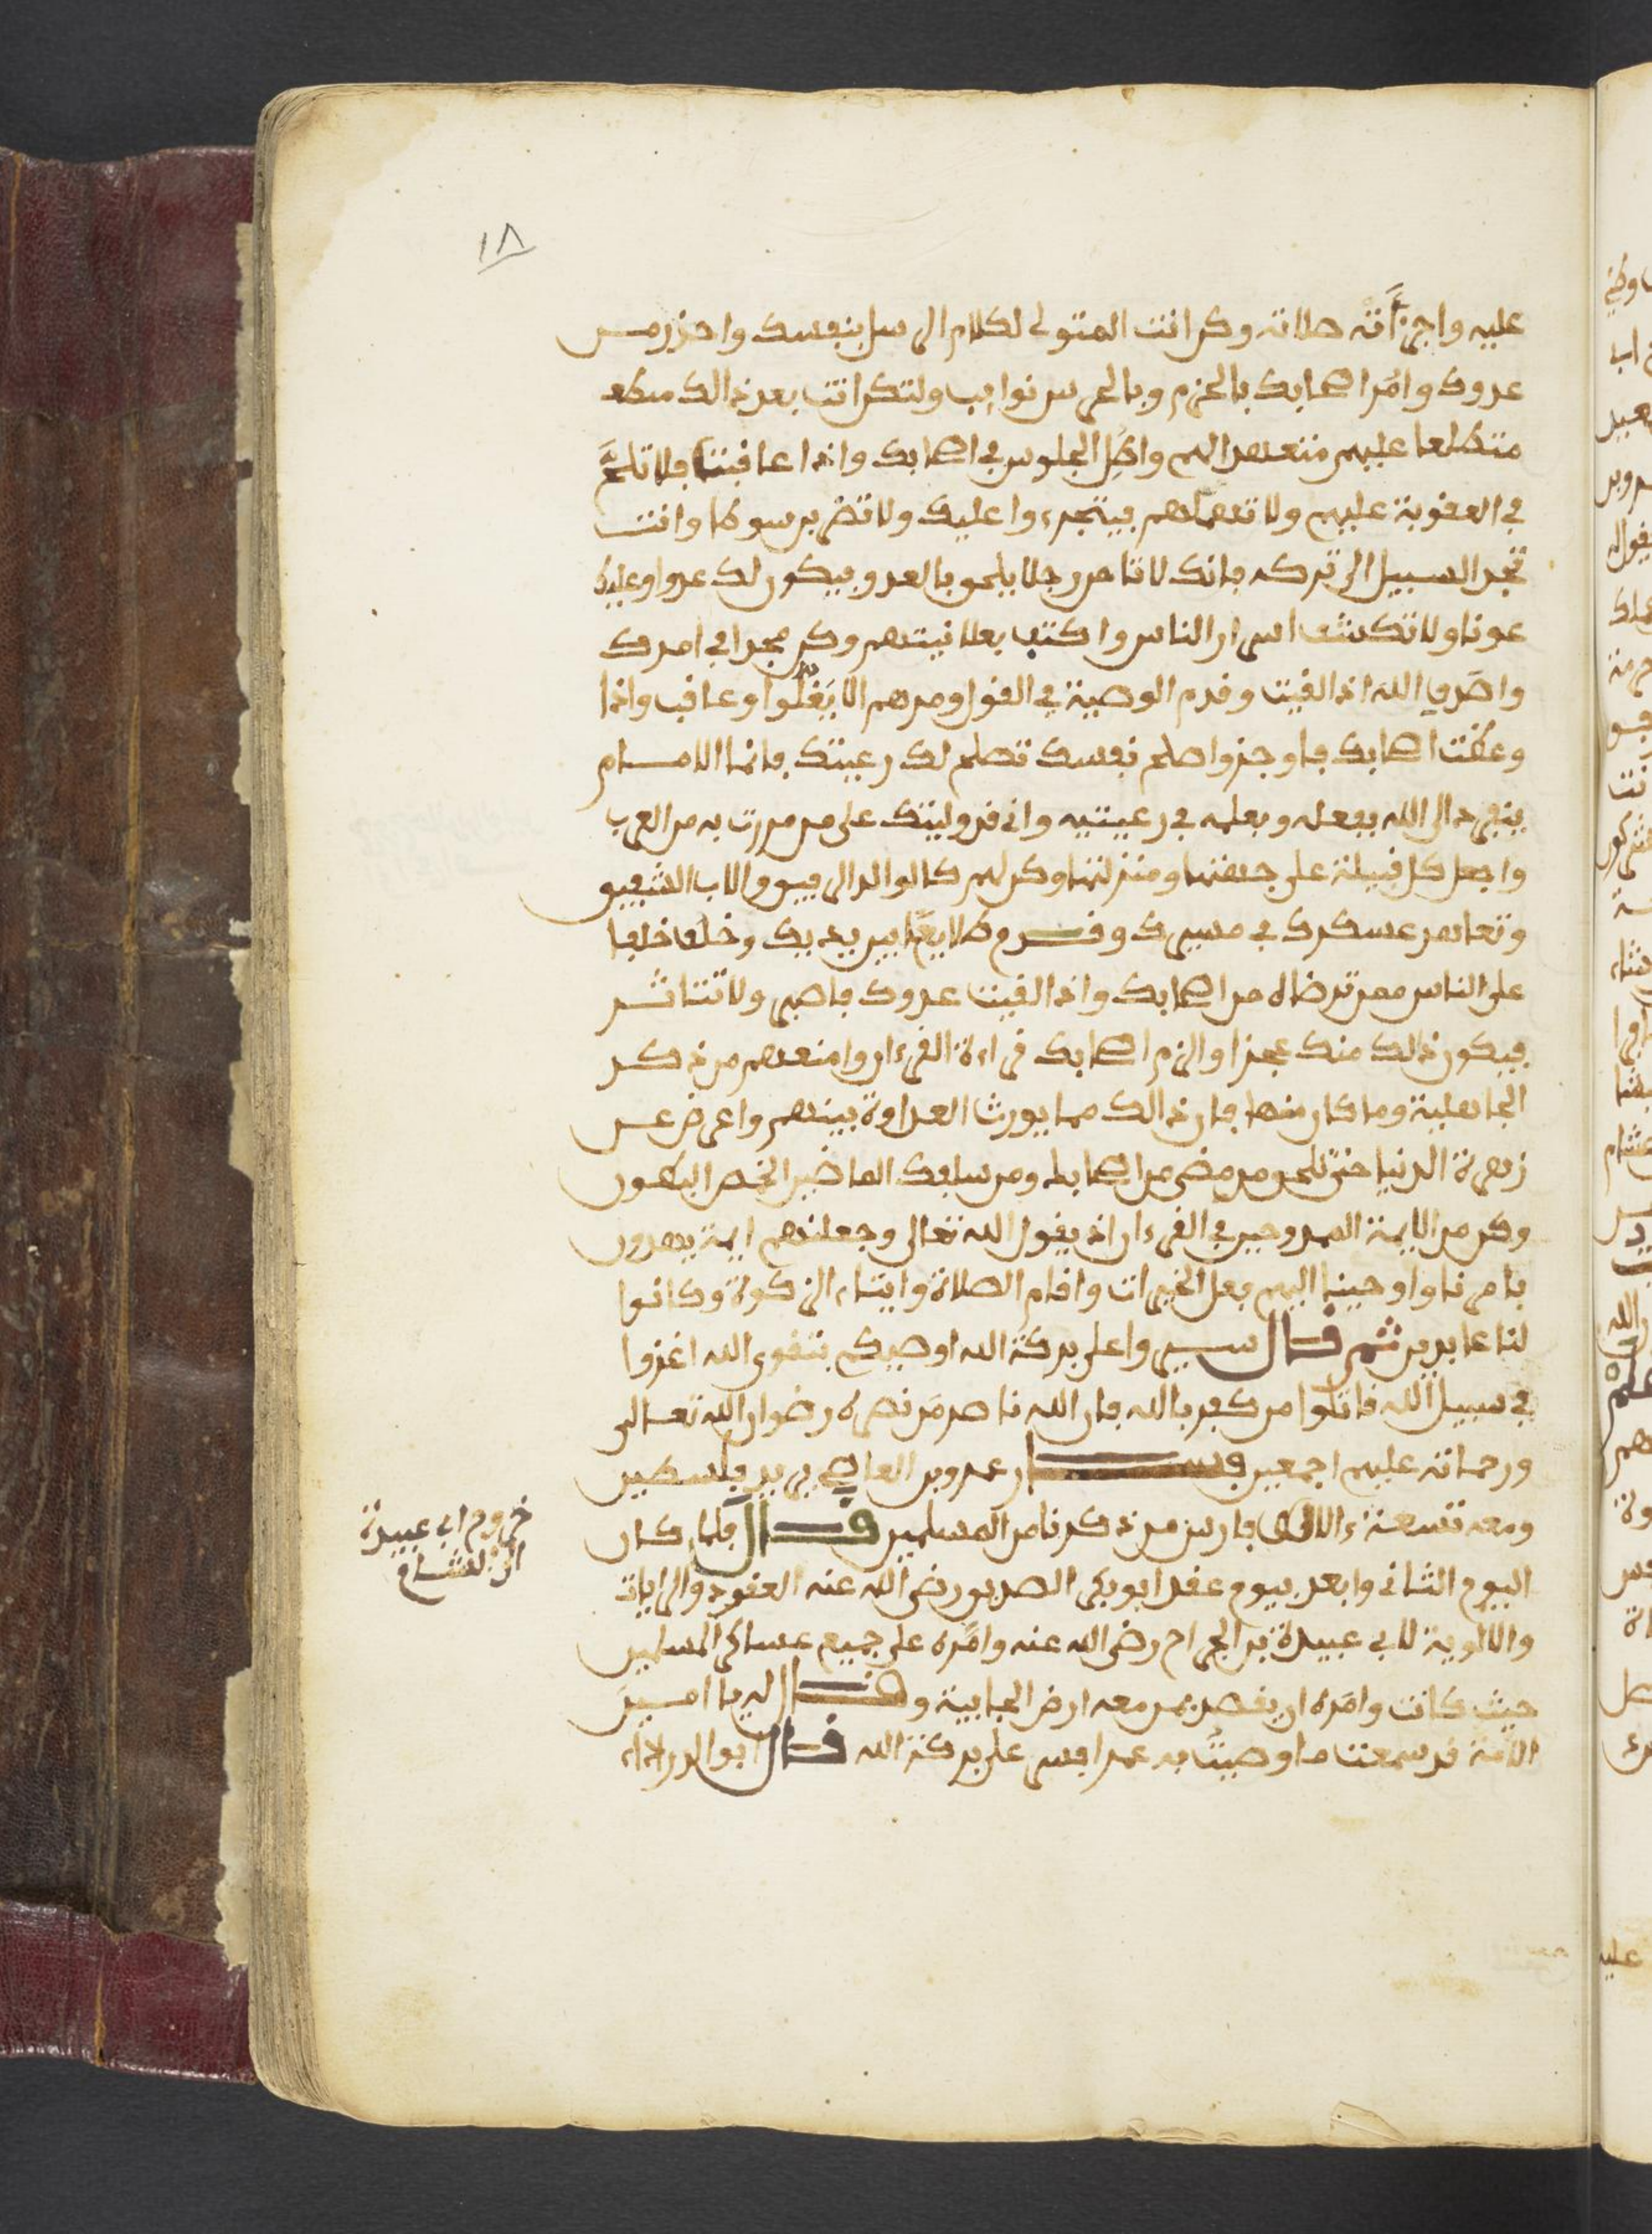 ١٨
عليه واجزأته صلاته وكن انت المتولى لكلام الرسل بنفسك واحذر من
عدوك وامر اصحابك بالحزم وبالحرس نوايب ولتكن انت بعد ذالك
متطلعا عليهم واطل الجلوس في اصحابك واذا عاقبت فلا تلح
في العقوبة عليهم ولا تمهلهم فيتجرءوا عليك ولا تضرب سوطا وانت
تجد السبيل الى تركه فانك لا تامن رجلا يلحق بالعدو فيكون لك عدوا وعليك
عونا ولا تكشف اسرار الناس واكتف بعلانيتهم وكن مجدا في امرك
واصدق الله اذا لقيت وقدم الوصية في القول ومرهم الا يغلوا وعاقب واذا
وعظت اصحابك فاوجز واصلح نفسك تصلح لك رعيتك فانما الامام
ينفرد الى الله بفعله وبعلمه في رعيتيه واني قد وليتك على من مررت به من العرب
واجعل كل قبيلة على جهتها ومنزلتها وكن لهم كالوالد الرفيق والاب الشفيق
وتعاهد عسكرك في مسيرك وقدم طلايعا بين يديك وخلف خلفا
على الناس ممن ترضاه من اصحابك واذا لقيت عدوك فاصبر ولا تتاخر
فيكون ذالك منك عجزا والزم اصحابك قراءة القرءان وامنعهم من ذكر
الجاهلية وما كان منها فان ذالك مما يورث العداوة بينهم واعرض عن
زهرة الدنيا حتى تلحق من مضى من اصحابك ومن سلفك الماضين الخمص البطون
وكن من الايمة الممدوحين في القرءان اذ يقول الله تعالى وجعلنهم ايمة يهدون
بامرنا واوحينا اليهم فعل الخيرات واقام الصلاة وايتاء الزكوة وكانوا
لنا عابدين ثم قال سيروا على بركة الله اوصيكم بتقوى الله اغزوا
في سبيل الله قاتلوا من كفر بالله فان الله ناصر من نصره رضوان الله تعالى
ورحماته عليهم اجمعين فسار عمرو بن العاصي يريد فلسطين
ومعه تسعة ءالاف فارس من ذكرنا من المسلمين قال فلما كان
اليوم الثاني وابعد بيوم عقد ابو بكر الصديق رضي الله عنه العقود والرايات
والالوية لابي عبيدة بن الجراح رضي الله عنه وامره على جميع عساكر المسلمين
حيث كانت وامره ان يقصد بمن معه ارض الجابية وقال له يا امين
الامة قد سمعت ما وصيت به عمرا فسر على بركة الله قال ابو الدرداء
خروج ابي عبيدة
الى الشام